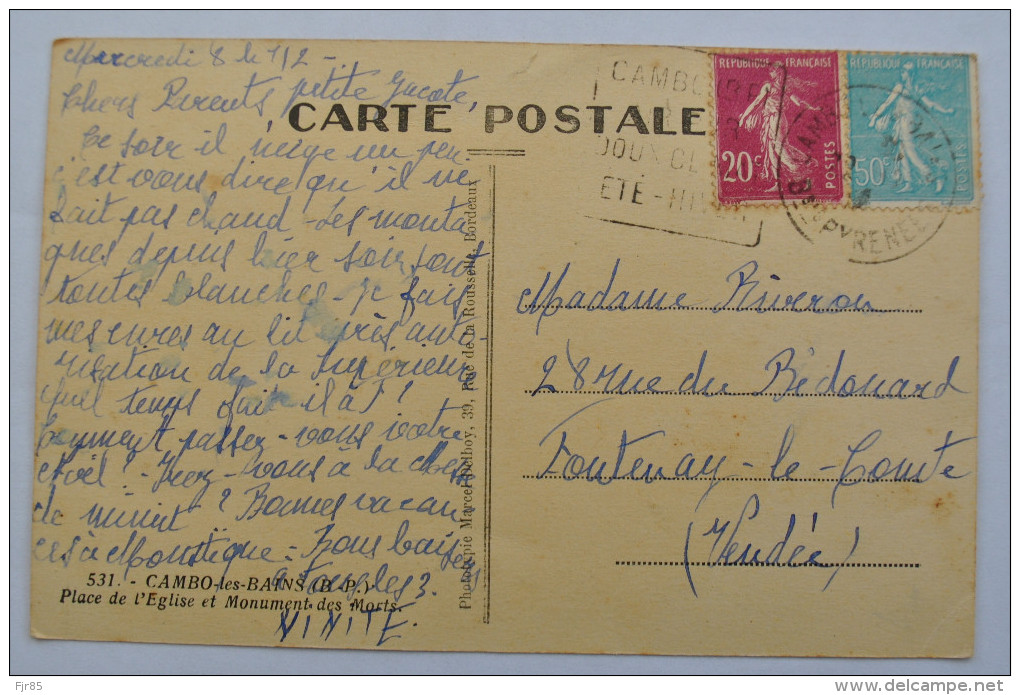 Mercredi 8 h 1/2 -
Chers Parents, petite Jacote,
CARTE POSTALE
Ce soir il neige un peu
c'est vous dire qu'il ne
fait pas chaud - Les monta
gnes depuis hier soir sont
toutes blanches - je fais
mes cures au lit après auto-
risation de la Supérieure
quel temps fait-il à F?
Comment passez-vous votre
Noël? - Irez-vous à la Messe
de minuit? Bonnes vacan
ces à Moustique - Bons baisers
à tous les 3.
NINITE.
531. - CAMBO-les-BAINS (B.-P.)
Place de l'Eglise et Monument des Morts.
Photoypie Marcel Delboy, 39, Rue de la Rousselle, Bordeaux
CAMBO
DOUX CL
ÉTÉ - HIV
RÉPUBLIQUE FRANÇAISE
20c
POSTES
RÉPUBLIQUE FRANÇAISE
50c
POSTES
PYRENEES
Madame Riveron
28 rue du Bédouard
Fontenay-le-Comte
(Vendée)
Fjr85
www.delcampe.net